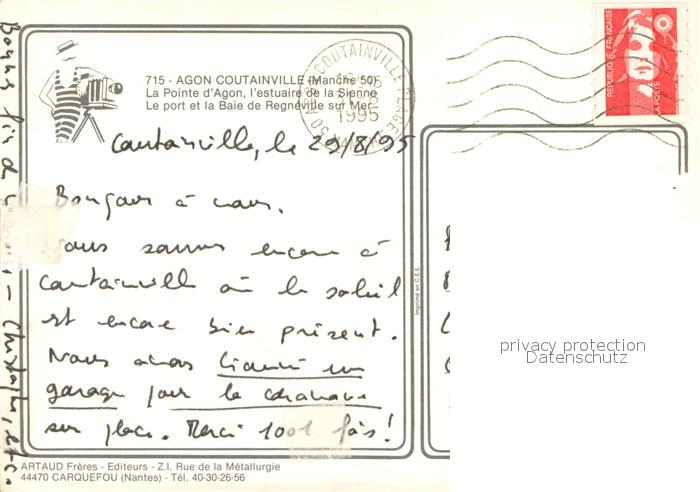 715 - AGON COUTAINVILLE (Manche 50)
La Pointe d'Agon, l'estuaire de la Sienne
Le port et la Baie de Regnéville sur Mer
50 AGON COUTAINVILLE PLAGE
1995
MANCHE
REPUBLIQUE FRANÇAISE
LA POSTE
Coutainville, le 29/8/95
Bonjour à vous.
Nous sommes encore à
Coutainville où le soleil
est encore bien présent.
Nous avons trouvé un
garage pour la caravane
sur place. Merci 1001 fois!
Bonne fin de
— Christophe, etc.
Imprimé en C.E.E.
privacy protection
Datenschutz
ARTAUD Frères - Editeurs - Z.I. Rue de la Métallurgie
44470 CARQUEFOU (Nantes) - Tél. 40-30-26-56